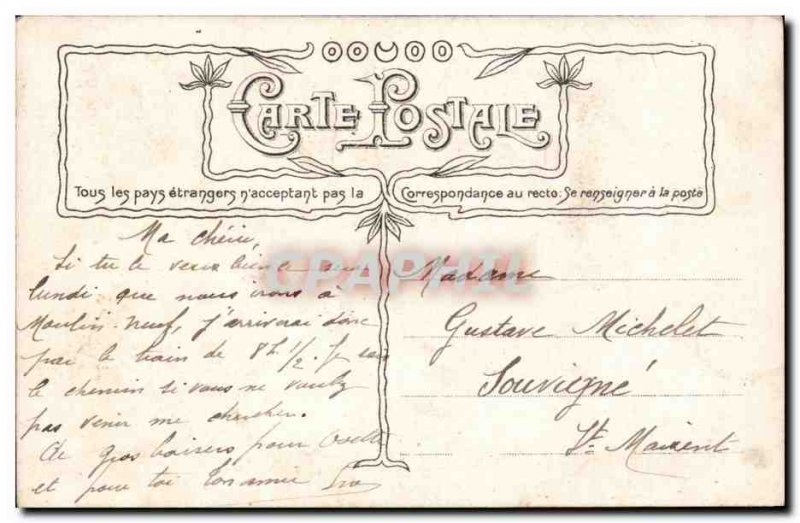 CARTE POSTALE
Tous les pays étrangers n'acceptant pas la Correspondance au recto: Se renseigner à la poste
Ma chérie,
Si tu le veux bien ce sera
lundi que nous irons à
Moulin-Neuf, j'arriverai donc
par le train de 8h 1/2. Je sais
le chemin si vous ne voulez
pas venir me chercher.
De gros baisers pour
et pour toi ton amie
Madame
Gustave Michelet
Souvigné
St Maixent
CPAPHIL